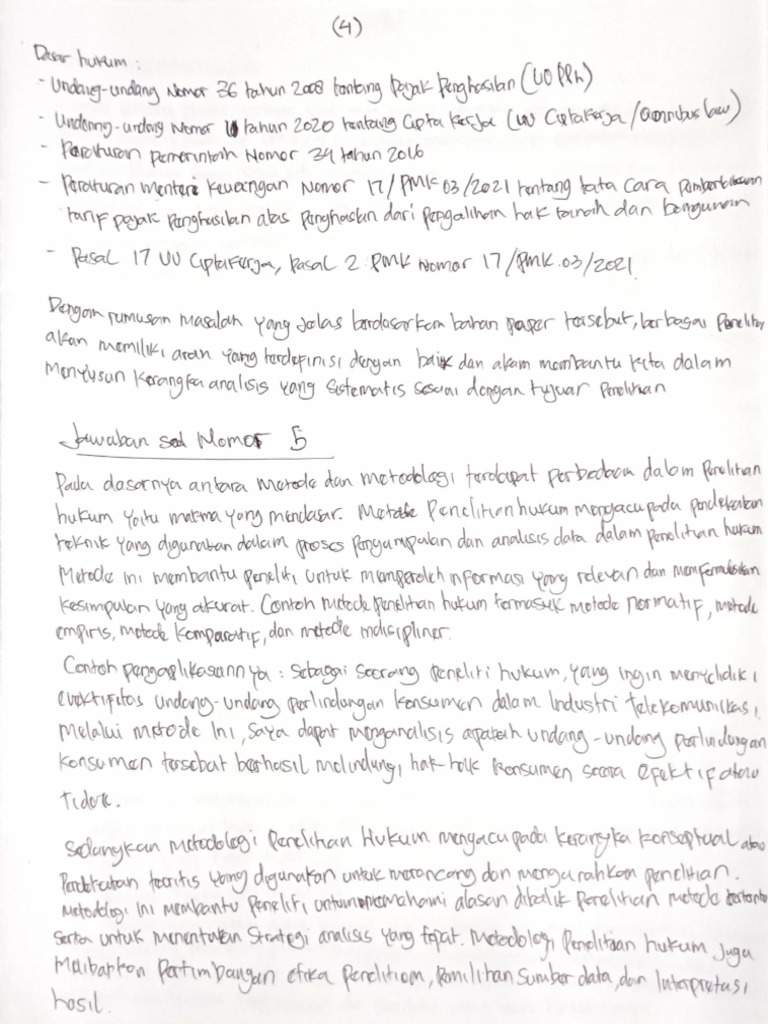 (4)
Dasar hukum :
- Undang-undang Nomor 36 tahun 2008 tentang Pajak Penghasilan (UU PPh)
- Undang-undang Nomor 11 tahun 2020 tentang Cipta Kerja (UU Cipta Kerja / Omnibus law)
- Peraturan pemerintah Nomor 34 tahun 2016
- Peraturan menteri keuangan Nomor 17/PMK 03/2021 tentang tata cara
tarif pajak penghasilan atas penghasilan dari pengalihan hak tanah dan bangunan
- Pasal 17 UU Cipta Kerja, Pasal 2 PMK Nomor 17/PMK.03/2021
Dengan rumusan masalah yang jelas berdasarkan bahan paper tersebut, berbagai
akan memiliki arah yang terdefinisi dengan baik dan akan membantu kita dalam
menyusun kerangka analisis yang sistematis sesuai dengan tujuan Penelitian
Jawaban soal Nomor 5
Pada dasarnya antara metode dan metodologi terdapat perbedaan dalam Penelitian
hukum yaitu makna yang mendasar. Metode Penelitian hukum mengacu pada pendekatan
teknik yang digunakan dalam proses pengumpulan dan analisis data dalam penelitian hukum
Metode ini membantu peneliti untuk memperoleh informasi yang relevan dan memformulasikan
kesimpulan yang akurat. Contoh metode penelitian hukum termasuk metode normatif, metode
empiris, metode komparatif, dan metode indisipliner.
Contoh pengaplikasiannya : sebagai seorang peneliti hukum, yang ingin menyelidiki
evektifitas undang-undang perlindungan konsumen dalam Industri telekomunikasi,
melalui metode ini, saya dapat menganalisis apakah undang-undang perlindungan
konsumen tersebut berhasil melindungi hak-hak konsumen secara efektif atau
tidak.
Sedangkan metodologi Penelitian Hukum mengacu pada kerangka konseptual atau
Pendekatan teoritis yang digunakan untuk merancang dan mengarahkan penelitian.
Metodologi ini membantu peneliti untuk memahami alasan dibalik penelitian metode tertentu
serta untuk menentukan strategi analisis yang tepat. Metodologi Penelitian hukum juga
melibatkan pertimbangan etika penelitian, pemilihan sumber data, dan Interpretasi
hasil.